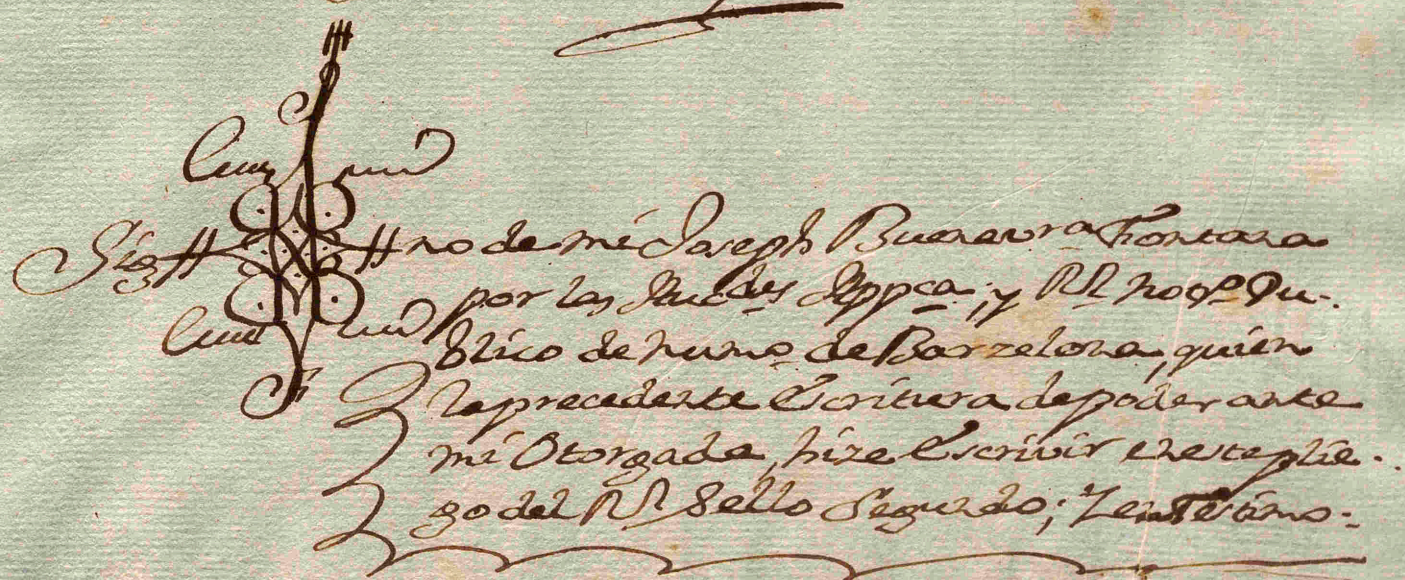 Sig no de mi Joseph Buenavra Fontana
por las Auctdes Appca, y Rl noto Pu-
blico de numo de Barzelona, quien
la precedente Escritura de poder ante
mi Otorgada, hize Escrivir en este plie-
go del Rl Sello Segundo; Y en Testimo-